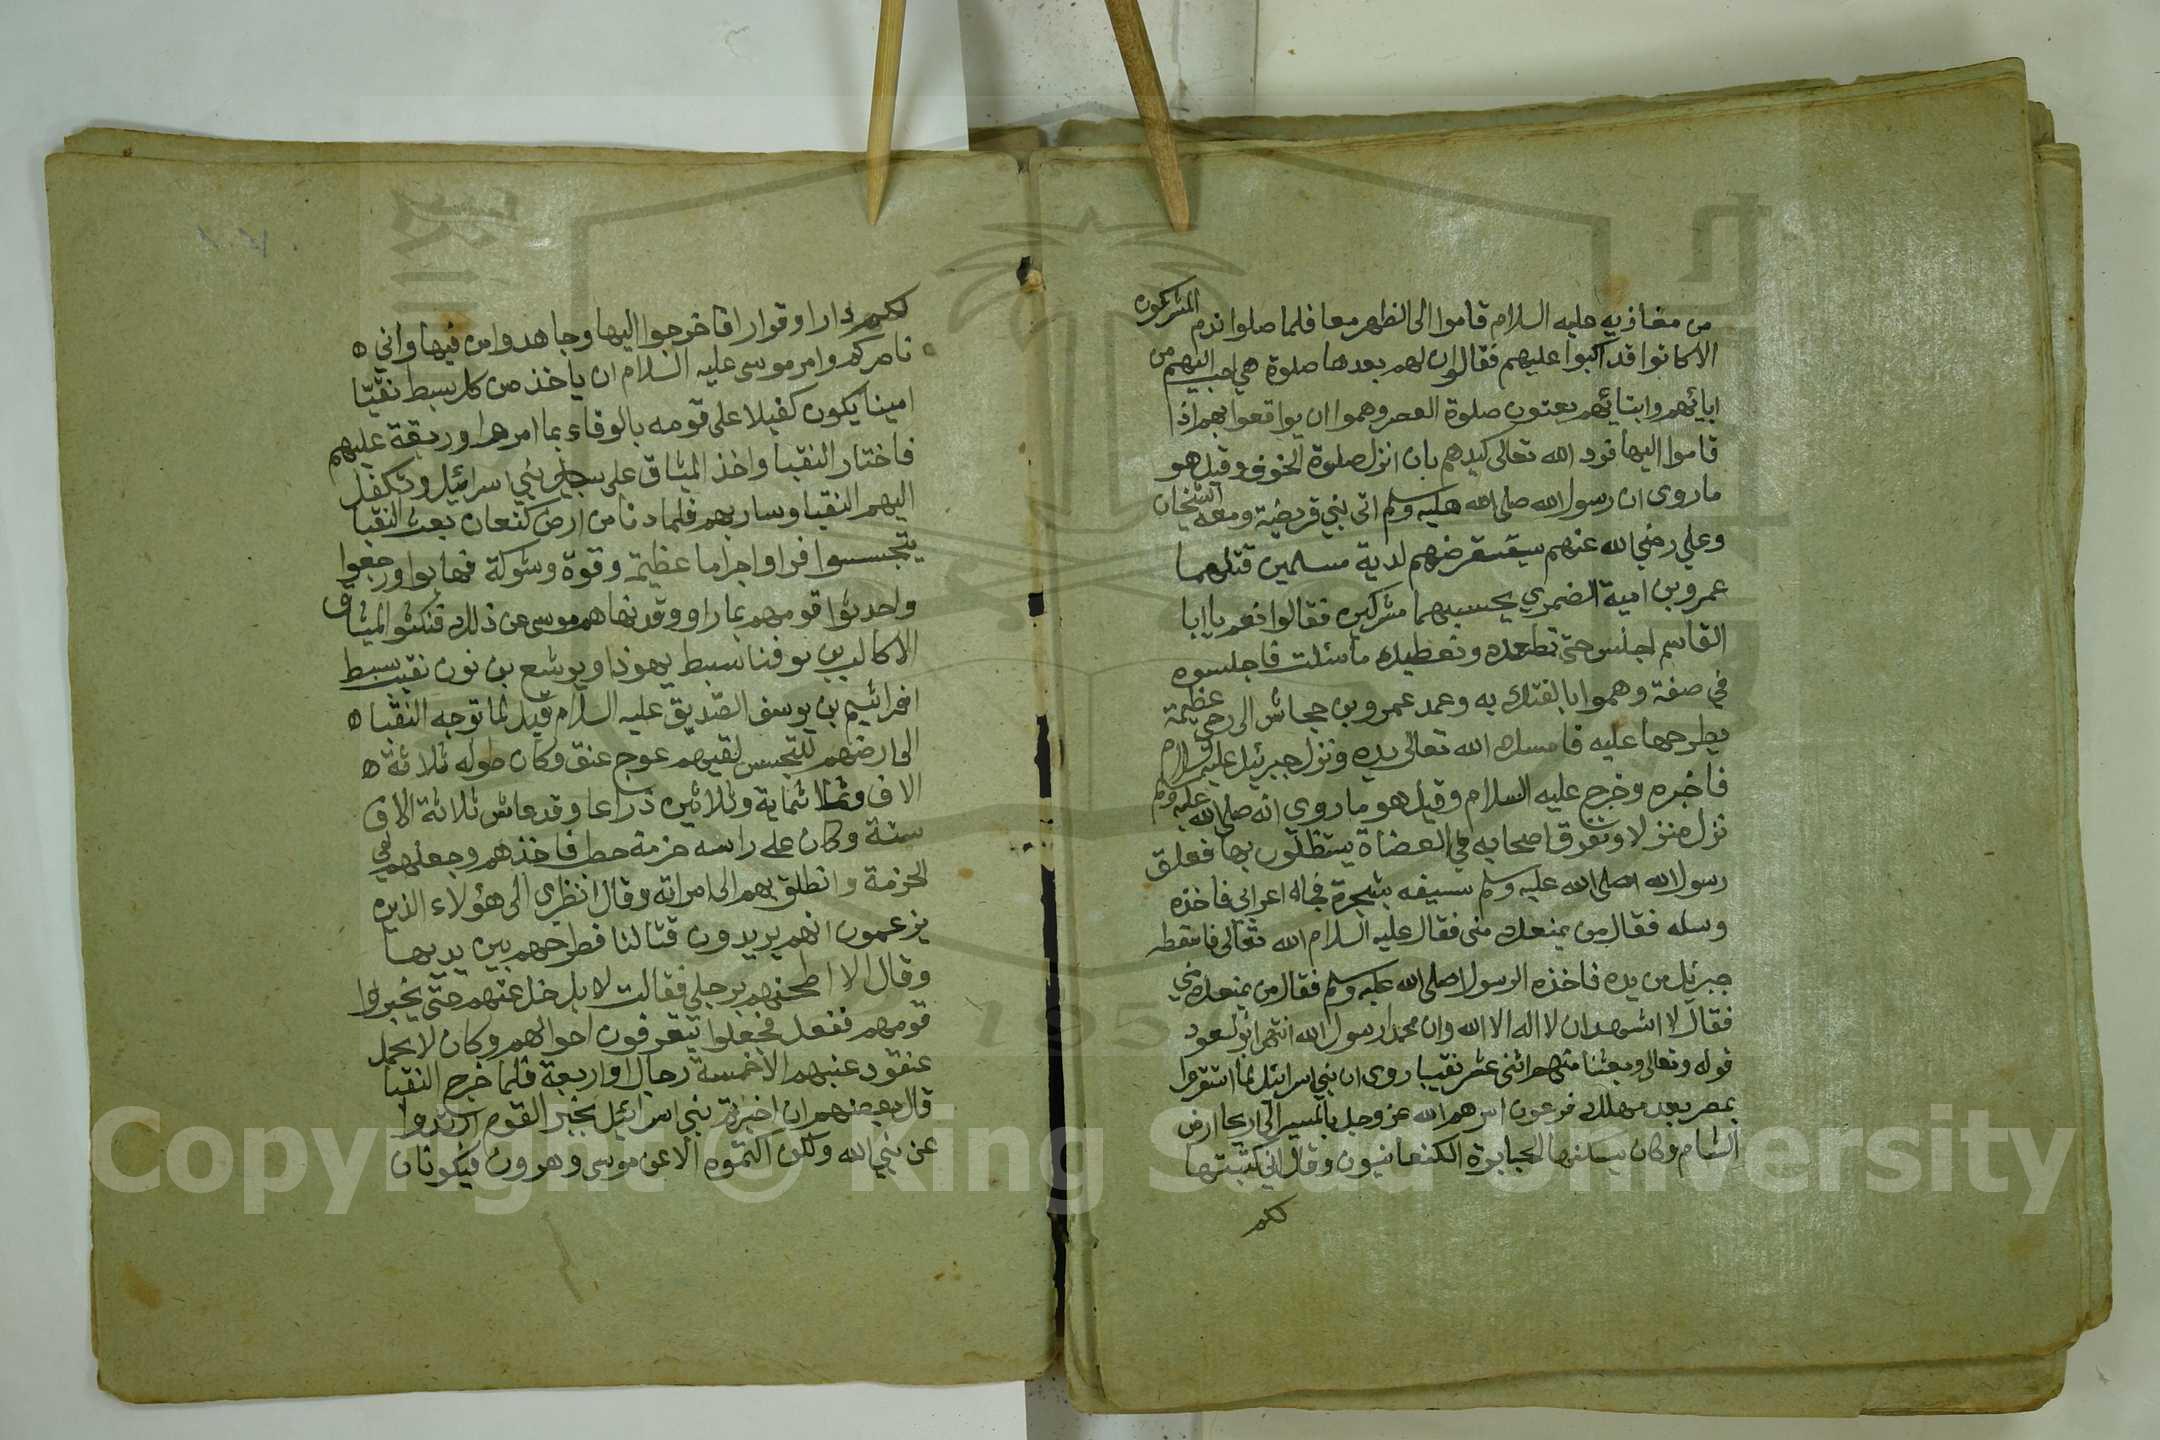 من مغازيه عليه السلام قاموا الى الظهر معا فلما صلوا ندم المشركون
الا كانوا قد اكبوا عليهم فقالوا ان لهم بعدها صلوة هي احب اليهم من
ابائهم وابنائهم يعنون صلوة العصر وهموا ان يواقعوا بهم اذا
قاموا اليها فرد الله تعالى كيدهم بان انزل صلوة الخوف وقيل هو
ما روى ان رسول الله صلى الله عليه وسلم اتى بني قريضة ومعه الشيخان
وعلي رضي الله عنهم يستقرضهم لدية مسلمين قتلهما
عمرو بن امية الضمري يحسبهما مشركين فقالوا نعم يا ابا
القاسم اجلس حتى نطعمك ونعطيك ما سئلت فاجلسوه
في صفة وهموا بالفتك به وعمد عمرو بن جحاش الى رحى عظيمة
يطرحها عليه فامسك الله تعالى يده ونزل جبرئيل عليه السلام
فاخبره وخرج عليه السلام وقيل هو ما روى انه صلى الله عليه وسلم
نزل منزلا وتفرق اصحابه في العضاة يستظلون بها فعلق
رسول الله صلى الله عليه وسلم سيفه بشجرة فجاء اعرابي فاخذه
وسله فقال من يمنعك منى فقال عليه السلام الله تعالى فاسقطه
جبرئيل من يده فاخذه الرسول صلى الله عليه وسلم فقال من يمنعك مني
فقال لا اشهد ان لا اله الا الله وان محمدا رسول الله انتهى ابو لسعود
قوله وتعالى وبعثنا منهم اثنى عشر نقيبا روى ان بني اسرائيل لما استقروا
بمصر بعد مهلك فرعون امرهم الله عز وجل بالمسير الى اريحا ارض
الشام وكان يسكنها الجبابرة الكنعانيون وقال اني كتبتها
لكم
لكم دارا وقرارا فاخرجوا اليها وجاهدوا من فيها واني ه
ناصركم وامر موسى عليه السلام ان ياخذ من كل سبط نقيبا
امينا يكون كفيلا على قومه بالوفاء بما امرهم عليهم
فاختار النقبا واخذ الميثاق على بني اسرائيل وتكفل
اليهم النقبا وسار بهم فلما دنا من ارض كنعان بعث النقبا
يتجسسوا فراوا اجراما عظيمة وقوة وشوكة فهابوا ورجعوا
واحدثوا قومهم بما راوو وقد نهاهم موسى عن ذلك فنكثوا الميثاق
الا كالب بن يوفنا سبط يهوذا ويوشع بن نون نقيب سبط
افرائيم بن يوسف الصديق عليه السلام قيل لما توجه النقبا ه
الى ارضهم للتجسس لقيهم عوج عنق وكان طوله ثلاثة ه
الاف وثلاثمائة وثلاثين ذراعا وقد عاش ثلاثة الاف
سنة وكان على راسه حزمة حطب فاخذهم وجعلهم في
الحزمة وانطلق بهم الى امراته وقال انظرى الى هؤلاء الذين
يزعمون انهم يريدون قتالنا فطرحهم بين يديها
وقال الا اطحنهم برجلي فقالت لا بل خل عنهم حتى يخبروا
قومهم ففعل فجعلوا يتعرفون احوالهم وكان لا يحمل
عنقود عنبهم الا خمسة رجال او اربعة فلما خرج النقبا
قال بعضهم ان اخبرتم بني اسرائيل بخبر القوم ارتدوا
عن نبي الله ولكن اكتموه الا عن موسى وهرون فيكونان